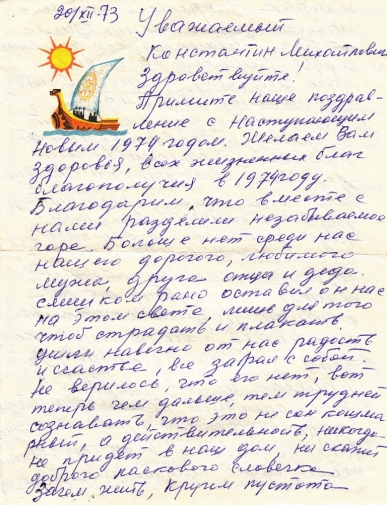 20/XII-73
Уважаемый
Константин Михайлович
Здравствуйте!
Примите наше поздрав-
ление с наступающим
новым 1974 годом. Желаем Вам
здоровья, всех жизненных благ
благополучия в 1974 году.
Благодарим, что вместе с
нами разделили незабываемое
горе. Больше нет среди нас
нашего дорогого, любимого
мужа, друга отца и деда.
слишком рано оставил он нас
на этом свете, лишь для того
чтоб страдать и плакать
ушли навечно от нас радость
и счастье, все забрал с собой.
Не верилось, что его нет, вот
теперь чем дальше, тем трудней
сознавать, что это не сон кошма
рный, а действительность, никогда
не придет в наш дом, ни скажит
доброго ласкового словечка
Зачем жить, кругом пустота